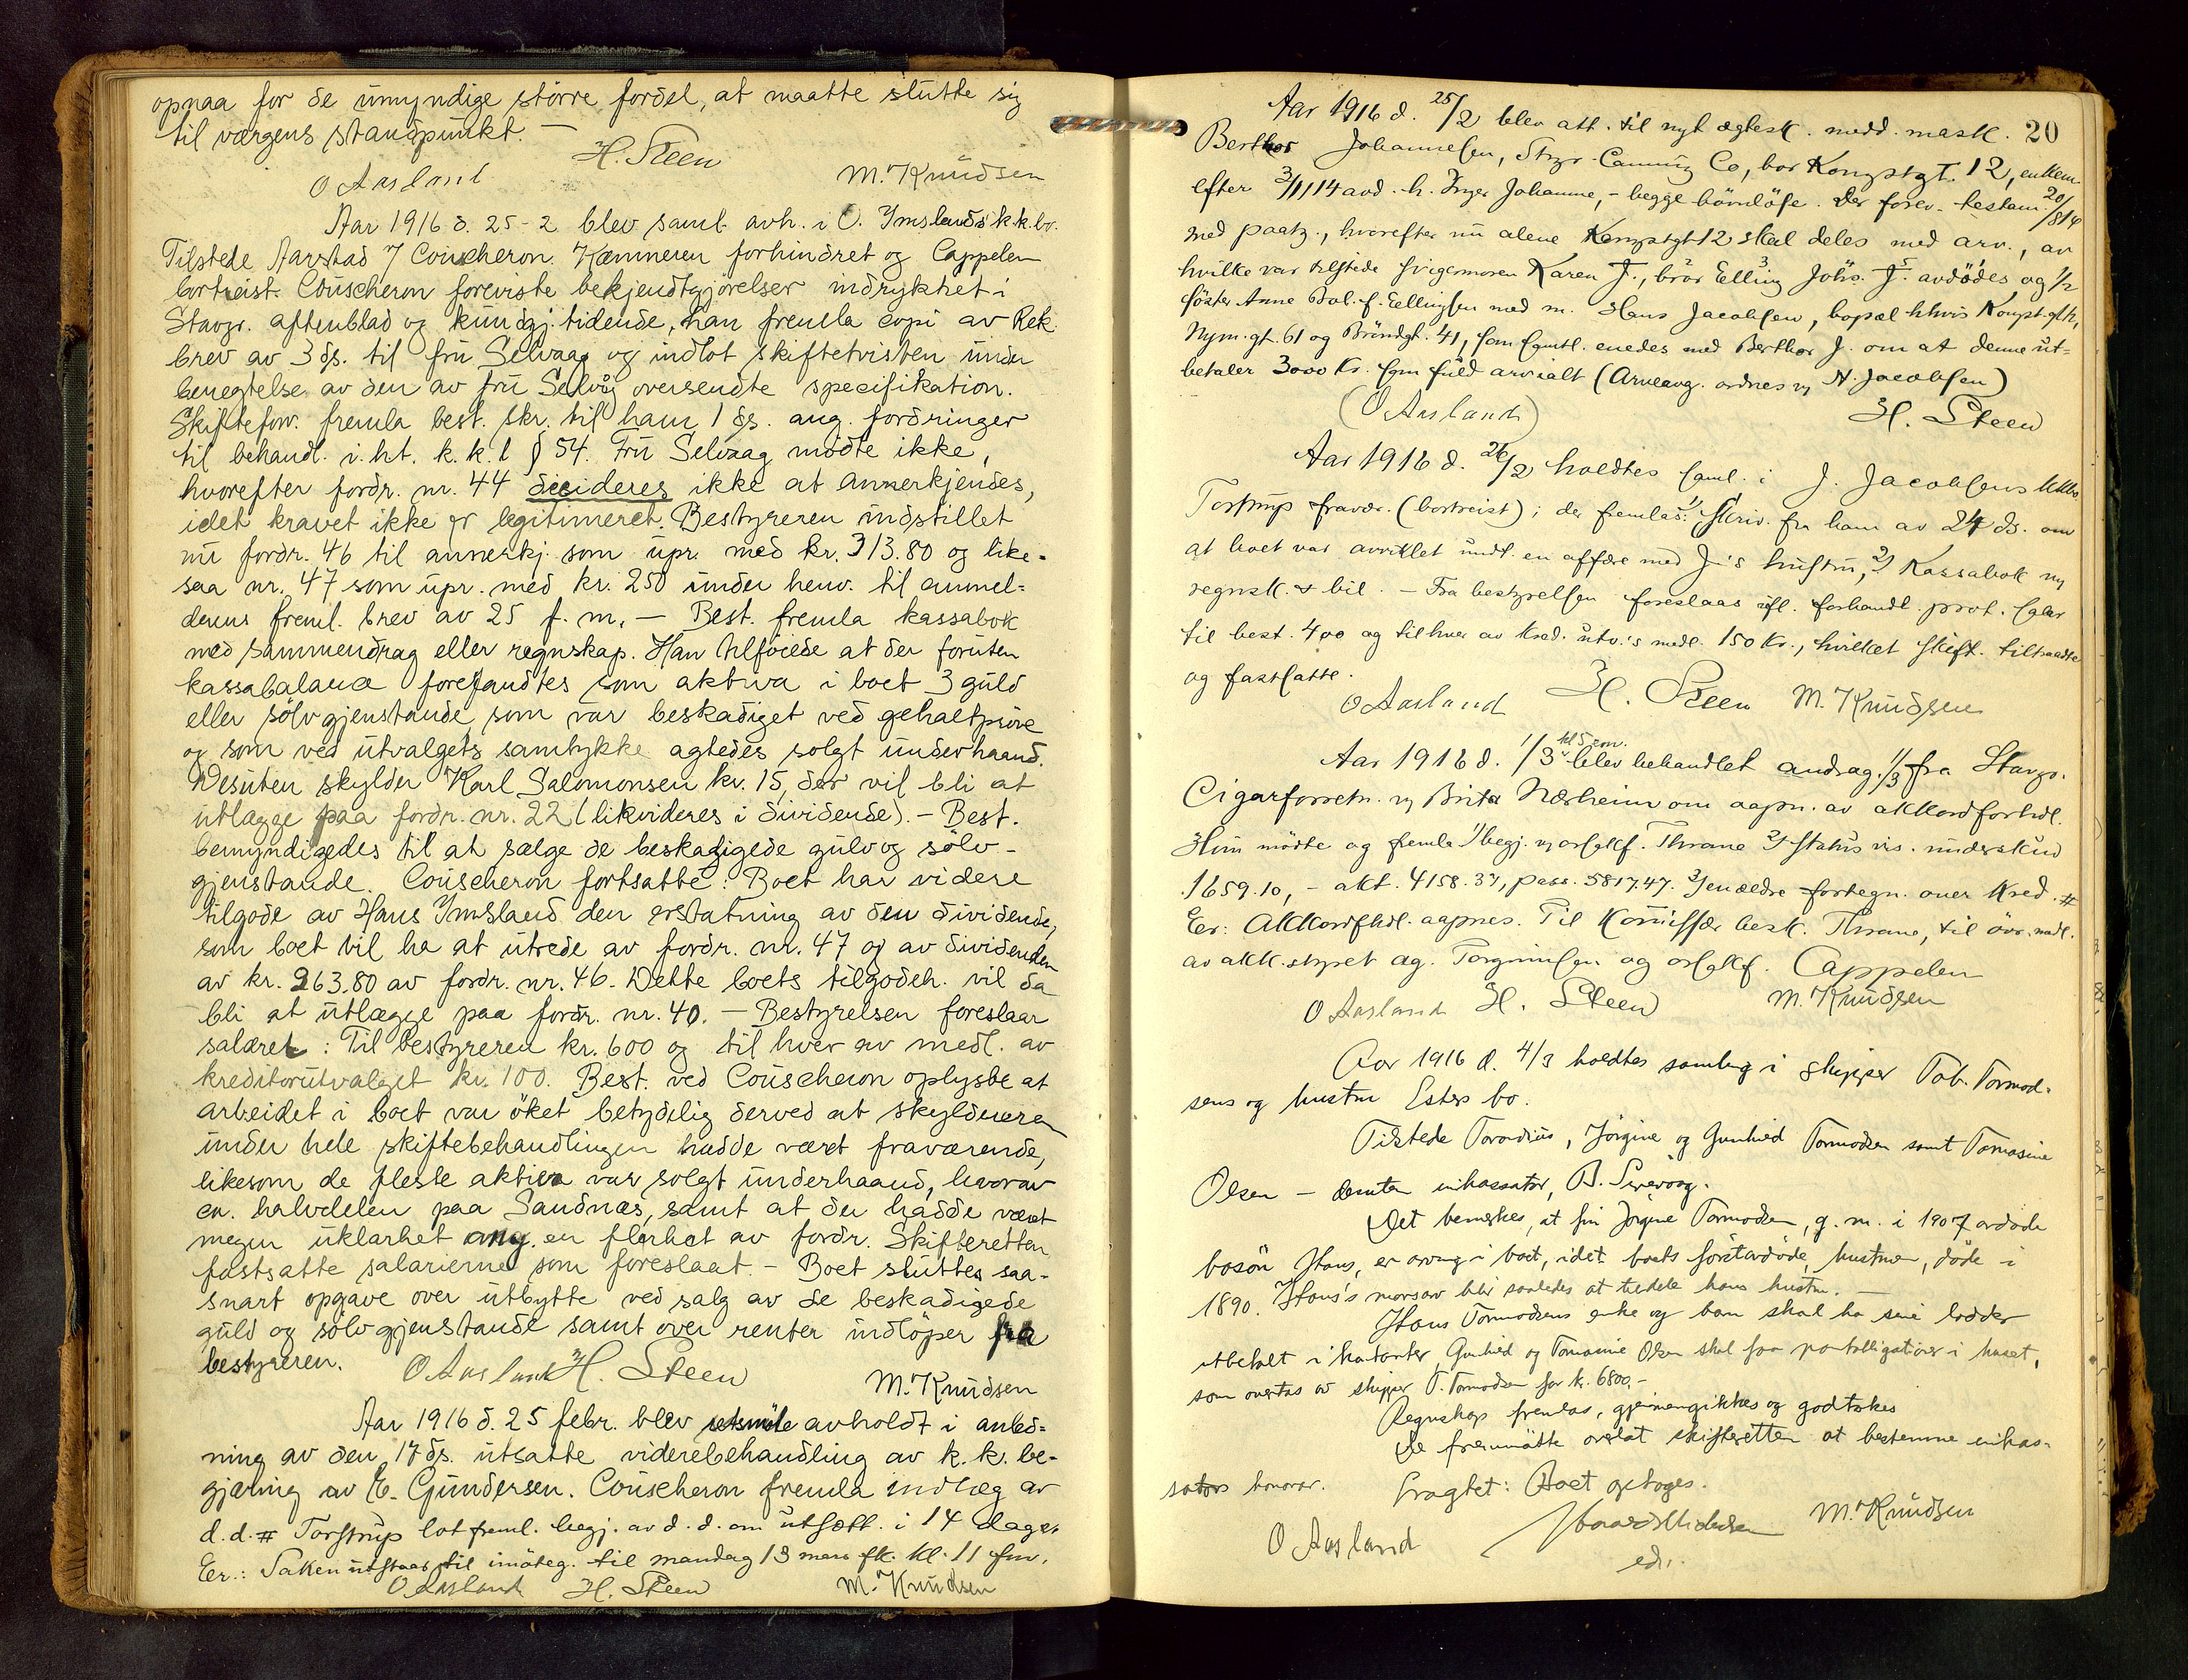 opnaa for de umyndige större fordel, at maatte slutte sig
til værgens standpunkt. —
O Aasland H. Steen M. Knudsen
Aar 1916 d. 25-2 blev saml. avh. i O. Ymslands k.k.bo.
Tilstede Aarstad & Couscheron. Kæmneren forhindret og Cappelen
bortreist. Couscheron foreviste bekjendtgjörelser indrykket i
Stavgr. aftenblad og kundgj. tidende, han fremla copi av Rek.
brev av 3 ds. til fru Selvaag og indlot skiftetvisten under
benegtelse av den av fru Selvåg oversendte specifikation.
Skifteforv. fremla best. skr. til ham 1 ds. ang. fordringer
til behandl. i.ht. k.k.l § 54. Fru Selvaag mödte ikke,
hvorefter fordr. nr. 44 decideres ikke at anerkjendes,
idet kravet ikke er legitimeret. Bestyreren indstillet
nu fordr. 46 til annerkj. som upr. med kr. 313.80 og like-
saa nr. 47 som upr. med kr. 250 under henv. til anmel-
derens freml. brev av 25 f.m. — Best. fremla kassabok
med sammendrag eller regnskap. Han tilföiede at der foruten
kassabalance forefandtes som aktiva i boet 3 guld
eller sölvgjenstande som var beskadiget ved gehaltpröve
og som ved utvalgets samtykke agtedes solgt underhaand.
Desuten skylder Karl Salomonsen kr. 15, der vil bli at
utlægge paa fordr. nr. 22 (likvideres i dividende). - Best.
bemyndigedes til at sælge de beskadigede gulv og sölv-
gjenstande. Couscheron fortsatte: Boet har videre
tilgode av Hans Ymsland den erstatning av den dividende,
som boet vil ha at utrede av fordr. nr. 47 og av dividenden
av kr. 263.80 av fordr. nr. 46. Dette boets tilgodeh. vil da
bli at utlægge paa fordr. nr. 40. — Bestyrelsen foreslaar
salæret: Til bestyreren kr. 600 og til hver av medl. av
kreditorutvalget kr. 100. Best. ved Couscheron oplyste at
arbeidet i boet var öket betydelig derved at skyldneren
under hele skiftebehandlingen hadde været fraværende,
likesom de fleste aktiva var solgt underhaand, hvorav
ca. halvdelen paa Sandnæs, samt at der hadde været
megen uklarhet ang. en flerhet av fordr. Skifteretten
fastsatte salærierne som foreslaat. - Boet sluttes saa-
snart opgave over utbytte ved salg av de beskadigede
guld og sölvgjenstande samt over renter indlöper fra
bestyreren. O Aasland H. Steen M. Knudsen
Aar 1916 d. 25 febr. blev retsmöte avholdt i anled-
ning av den 17 ds. utsatte viderebehandling av k.k. be-
gjæring av E. Gundersen. Couscheron fremla indlæg av
d.d. # Torstrup lot freml. begj. av d.d. om utsætt. i 14 dager
Er.: Saken utstaar til imöteg. til mandag 13 mars fk. kl. 11 fm.
O Aasland H. Steen M. Knudsen
20
Aar 1916 d. 25/2 blev att. til nyt ægtesk. medd. mask.
Berthor Johannesen, Stvgr. Canning Co, bor Kongsgt. 12, enkem.
efter 3/11 14 avd. h. Inger Johanne, - begge börnlöse. Der forev. testam. 20/8 14
med paateg., hvorefter nu alene Kongsgt 12 skal deles med arv., av
hvilke var tilstede svigermoren Karen J., bror Elling Johs. J. avdödes og 1/2
söster Anne Bol. f. Ellingsen med m. Hans Jacobsen, bopæl hhvis Kongsgt. 12,
Nym. gt. 61 og Bröndgt. 41, som samtl. enedes med Berthor J. om at denne ut-
betaler 3000 kr. som fuld arv ialt (Arveavg. ordnes v. H. Jacobsen)
(O Aasland) H. Steen
Aar 1916 d. 26/2 holdtes saml. i J. Jacobsens kkbo
Torstrup fravær. (bortreist); der fremlas: 1) Skriv. fra ham av 24 ds. om
at boet var avviklet undt. en affære med J.'s hustru, 2) Kassabok og
regnsk. & bil. - Fra bestyrelsen foreslaas ifl. forhandl. prot. salær
til best. 400 og til hver av kred. utv.'s medl. 150 kr., hvilket skift. tiltraadte
og fastsatte.
O Aasland H. Steen M. Knudsen
Aar 1916 d. 1/3 kl 5 em. blev behandlet andrag. 1/3 fra Stavgr.
Cigarforretn. v. Brita Nærheim om aapn. av akkordforhdl.
Hun mödte og fremla 1) begj. v. orsakf. Thrane 2) Status vis. underskud
1659.10, - akt. 4158.37, pass. 5817.47. 3) en ældre fortegn. over kred. #
Er: Akkordfhdl. aapnes. Til Komissær besk. Thrane, til övr. medl.
av akk. styret ag. Torginnsen og orsakf. Cappelen
O Aasland H. Steen M. Knudsen
Aar 1916 d. 4/3 holdtes samling i skipper Tob. Tormod-
sens og hustru Esters bo.
Tilstede Tarodius, Jörgine og Gunhild Tormodsen samt Tomasine
Olsen — desuten inkassator, B. Sirevaag.
Det bemerkes, at fru Jörgine Tormodsen, g. m. i 1907 avdöde
bosön Hans, er arving i boet, idet boets förstavdöde, hustruen, döde i
1890. Hans's morsarv blir saaledes at tildele hans hustru. —
Hans Tormodsens enke og barn skal ha sine lodder
utbetalt i kontanter, Gunhild og Tomasine Olsen skal faa pantobligationer i huset,
som overtas av skipper T. Tormodsen for kr. 6800.-
Regnskap fremlas, gjennemgikkes og godtokes
De fremmötte overlot skifteretten at bestemme inkas-
sators honorar. Fragtet: Boet optoges.
O Aasland M. Knudsen
edv.